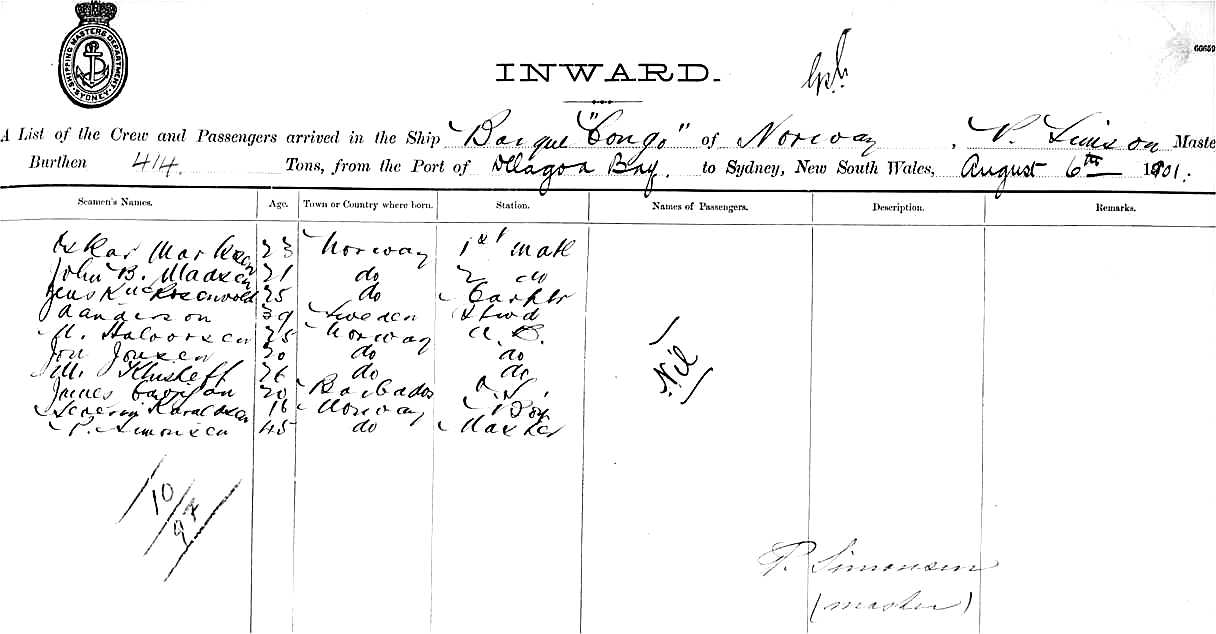 SHIPPING MASTERS DEPARTMENT
SYDNEY
60659
INWARD.
A List of the Crew and Passengers arrived in the Ship Barque "Congo" of Norway, P. Simson Maste
Burthen 414. Tons, from the Port of Dllagoa Bay. to Sydney, New South Wales, August 6th 1901.
Seamen's Names. Age. Town or Country where born. Station. Names of Passengers. Description. Remarks.
Oskar Marksen 23 Norway 1st mate
John B. Madsen 21 do 2 do
Jens 25 do Carptr
anderson 39 Sweden Stwd
M. Halvorsen 25 Norway A.B.
Jon Jonsen 20 do do
M. 26 do do
James 20 Barbados O.S.
16 Norway Boy
P. Simonsen 45 do Master
Nil
10/97
P. Simonsen
(master)